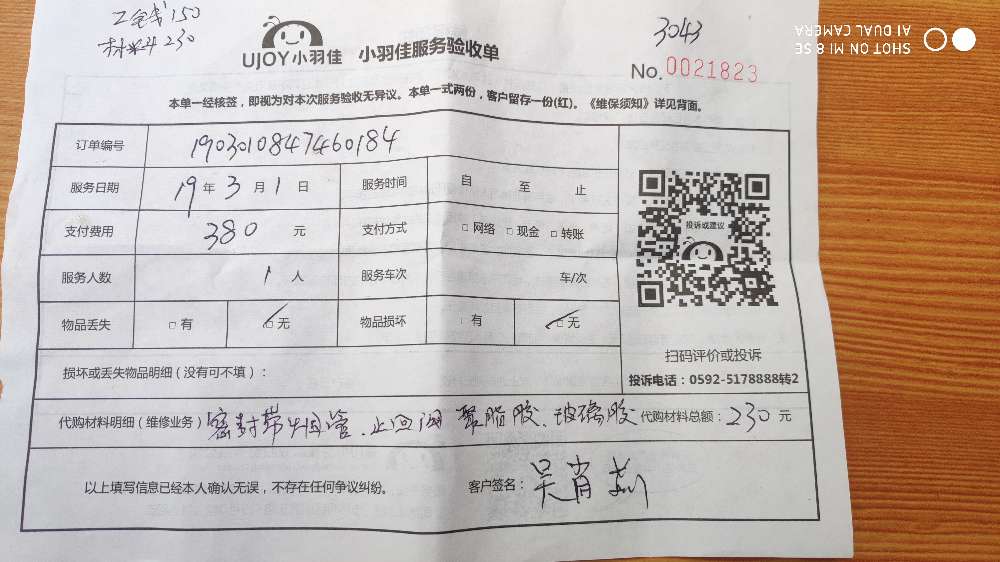 工钱150
材料230
3043
UJOY小羽佳 小羽佳服务验收单
No. 0021823
本单一经核签，即视为对本次服务验收无异议。本单一式两份，客户留存一份(红)。《维保须知》详见背面。
订单编号 1903010847460184
服务日期 19年3月1日 服务时间 自 至 止
支付费用 380 元 支付方式 □网络 □现金 □转账
投诉或建议
服务人数 1人 服务车次 车/次
物品丢失 □有 □无 物品损坏 □有 □无
扫码评价或投诉
投诉电话：0592-5178888转2
损坏或丢失物品明细（没有可不填）：
代购材料明细（维修业务）密封带 烟管、止回阀 聚脂胶、玻璃胶 代购材料总额：230元
以上填写信息已经本人确认无误，不存在任何争议纠纷。 客户签名：吴肖
SHOT ON MI 8 SE
AI DUAL CAMERA